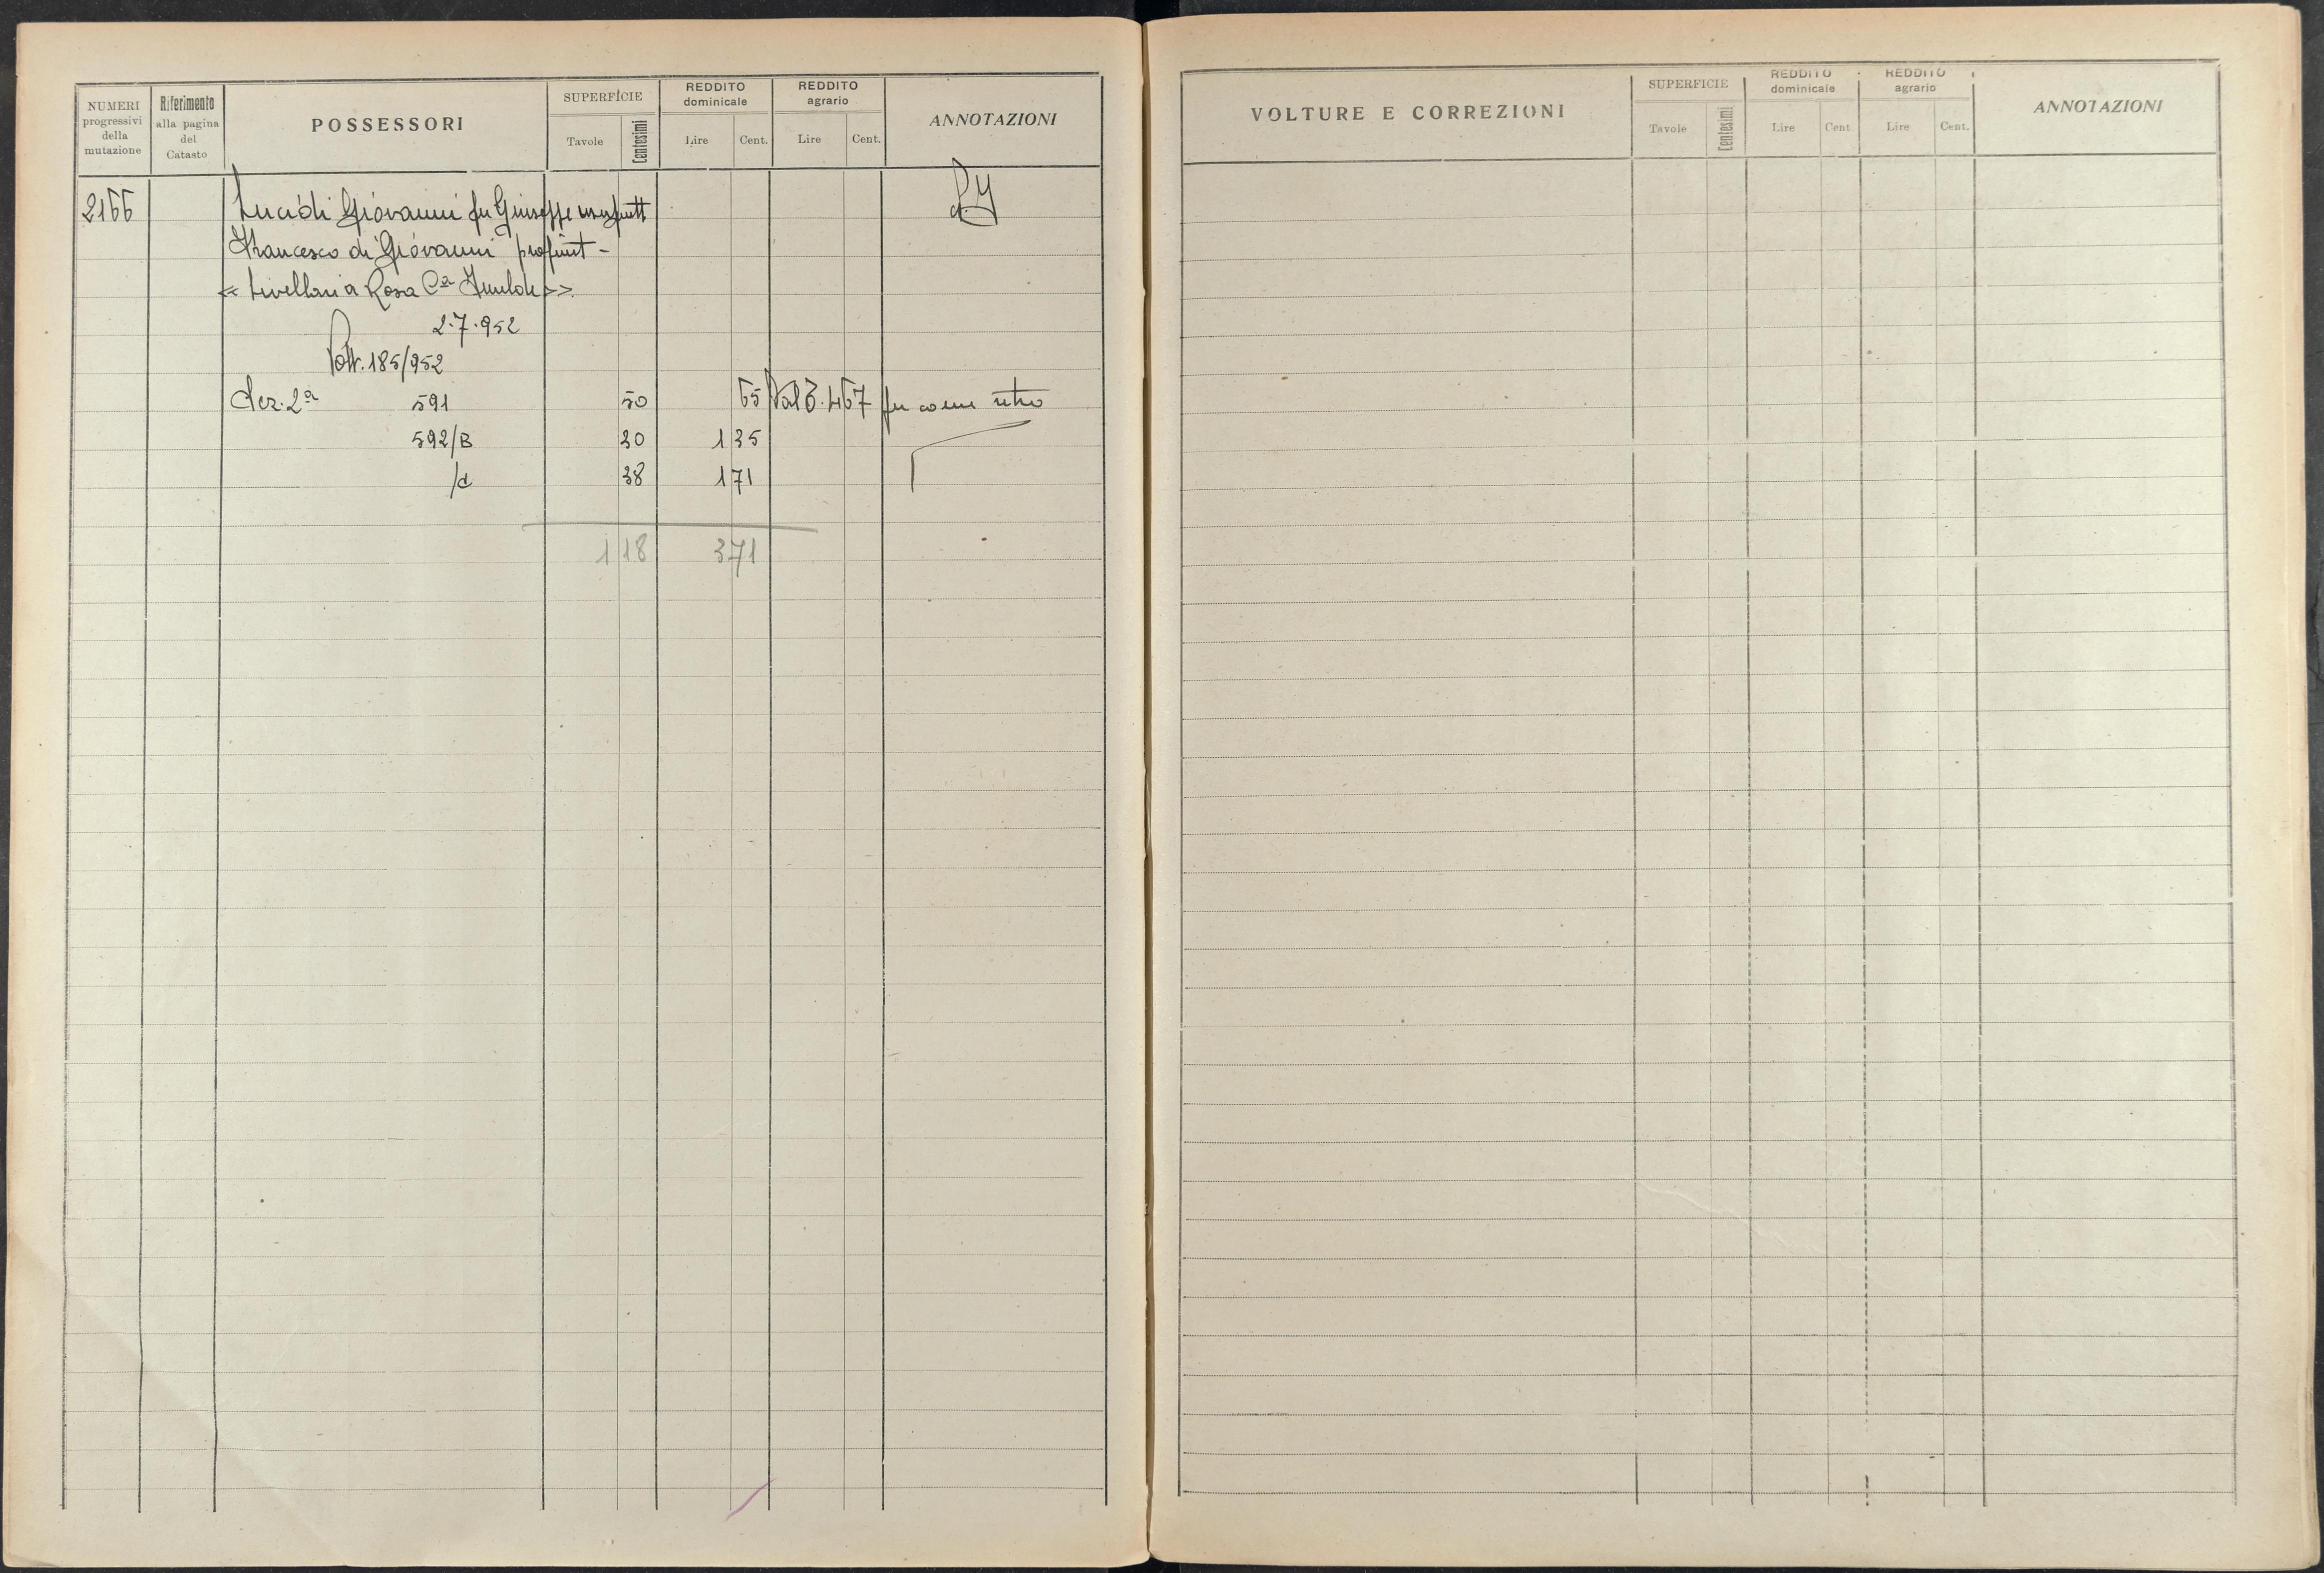 NUMERI progressivi della mutazione
Riferimento alla pagina del Catasto
POSSESSORI
SUPERFICIE
Tavole Centesimi
REDDITO dominicale
Lire Cent.
REDDITO agrario
Lire Cent.
ANNOTAZIONI
2166 Lucidi Giovanni fu Giuseppe usufrutt
Francesco di Giovanni propriet -
« Livellari a Rosa C.a »
2.7.952
Volt. 185/952
Sez. 2a 591 50 65 Val 3. 467 fu come retro
592/B 30 1 35
/d 38 1 71
1 18 3 71
VOLTURE E CORREZIONI
SUPERFICIE
Tavole Centesimi
REDDITO dominicale
Lire Cent
REDDITO agrario
Lire Cent.
ANNOTAZIONI